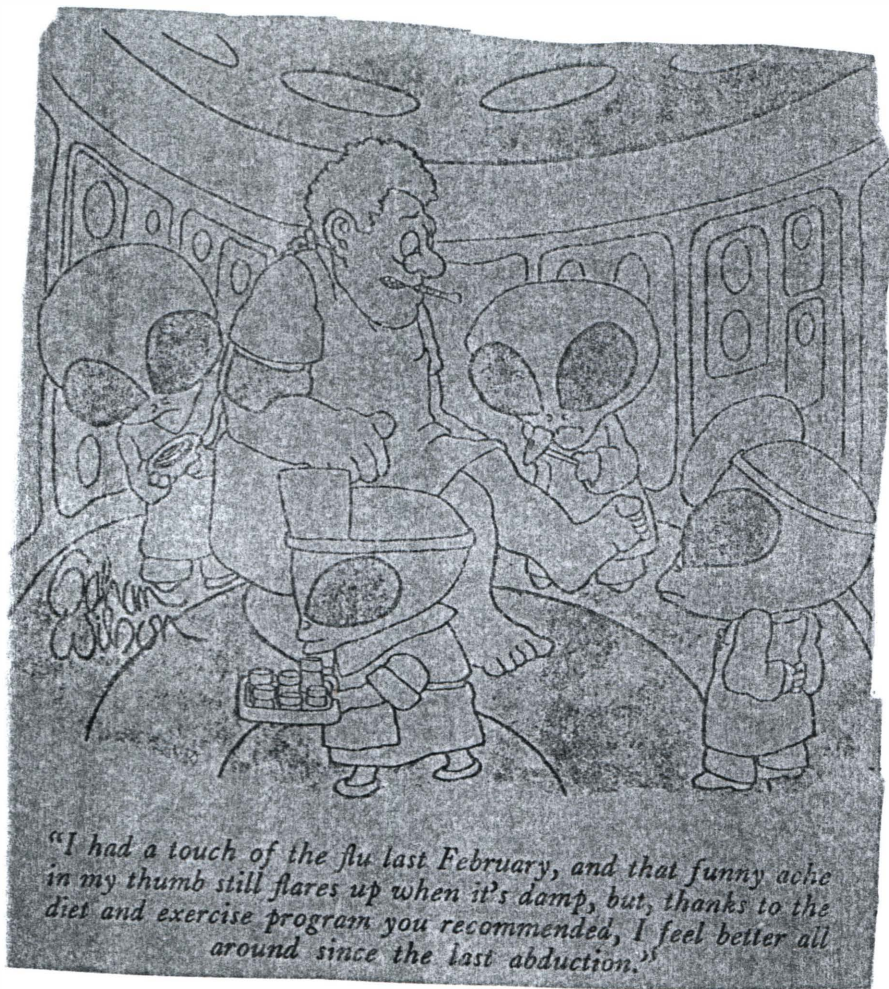 Gahan
Wilson
"I had a touch of the flu last February, and that funny ache
in my thumb still flares up when it's damp, but, thanks to the
diet and exercise program you recommended, I feel better all
around since the last abduction."